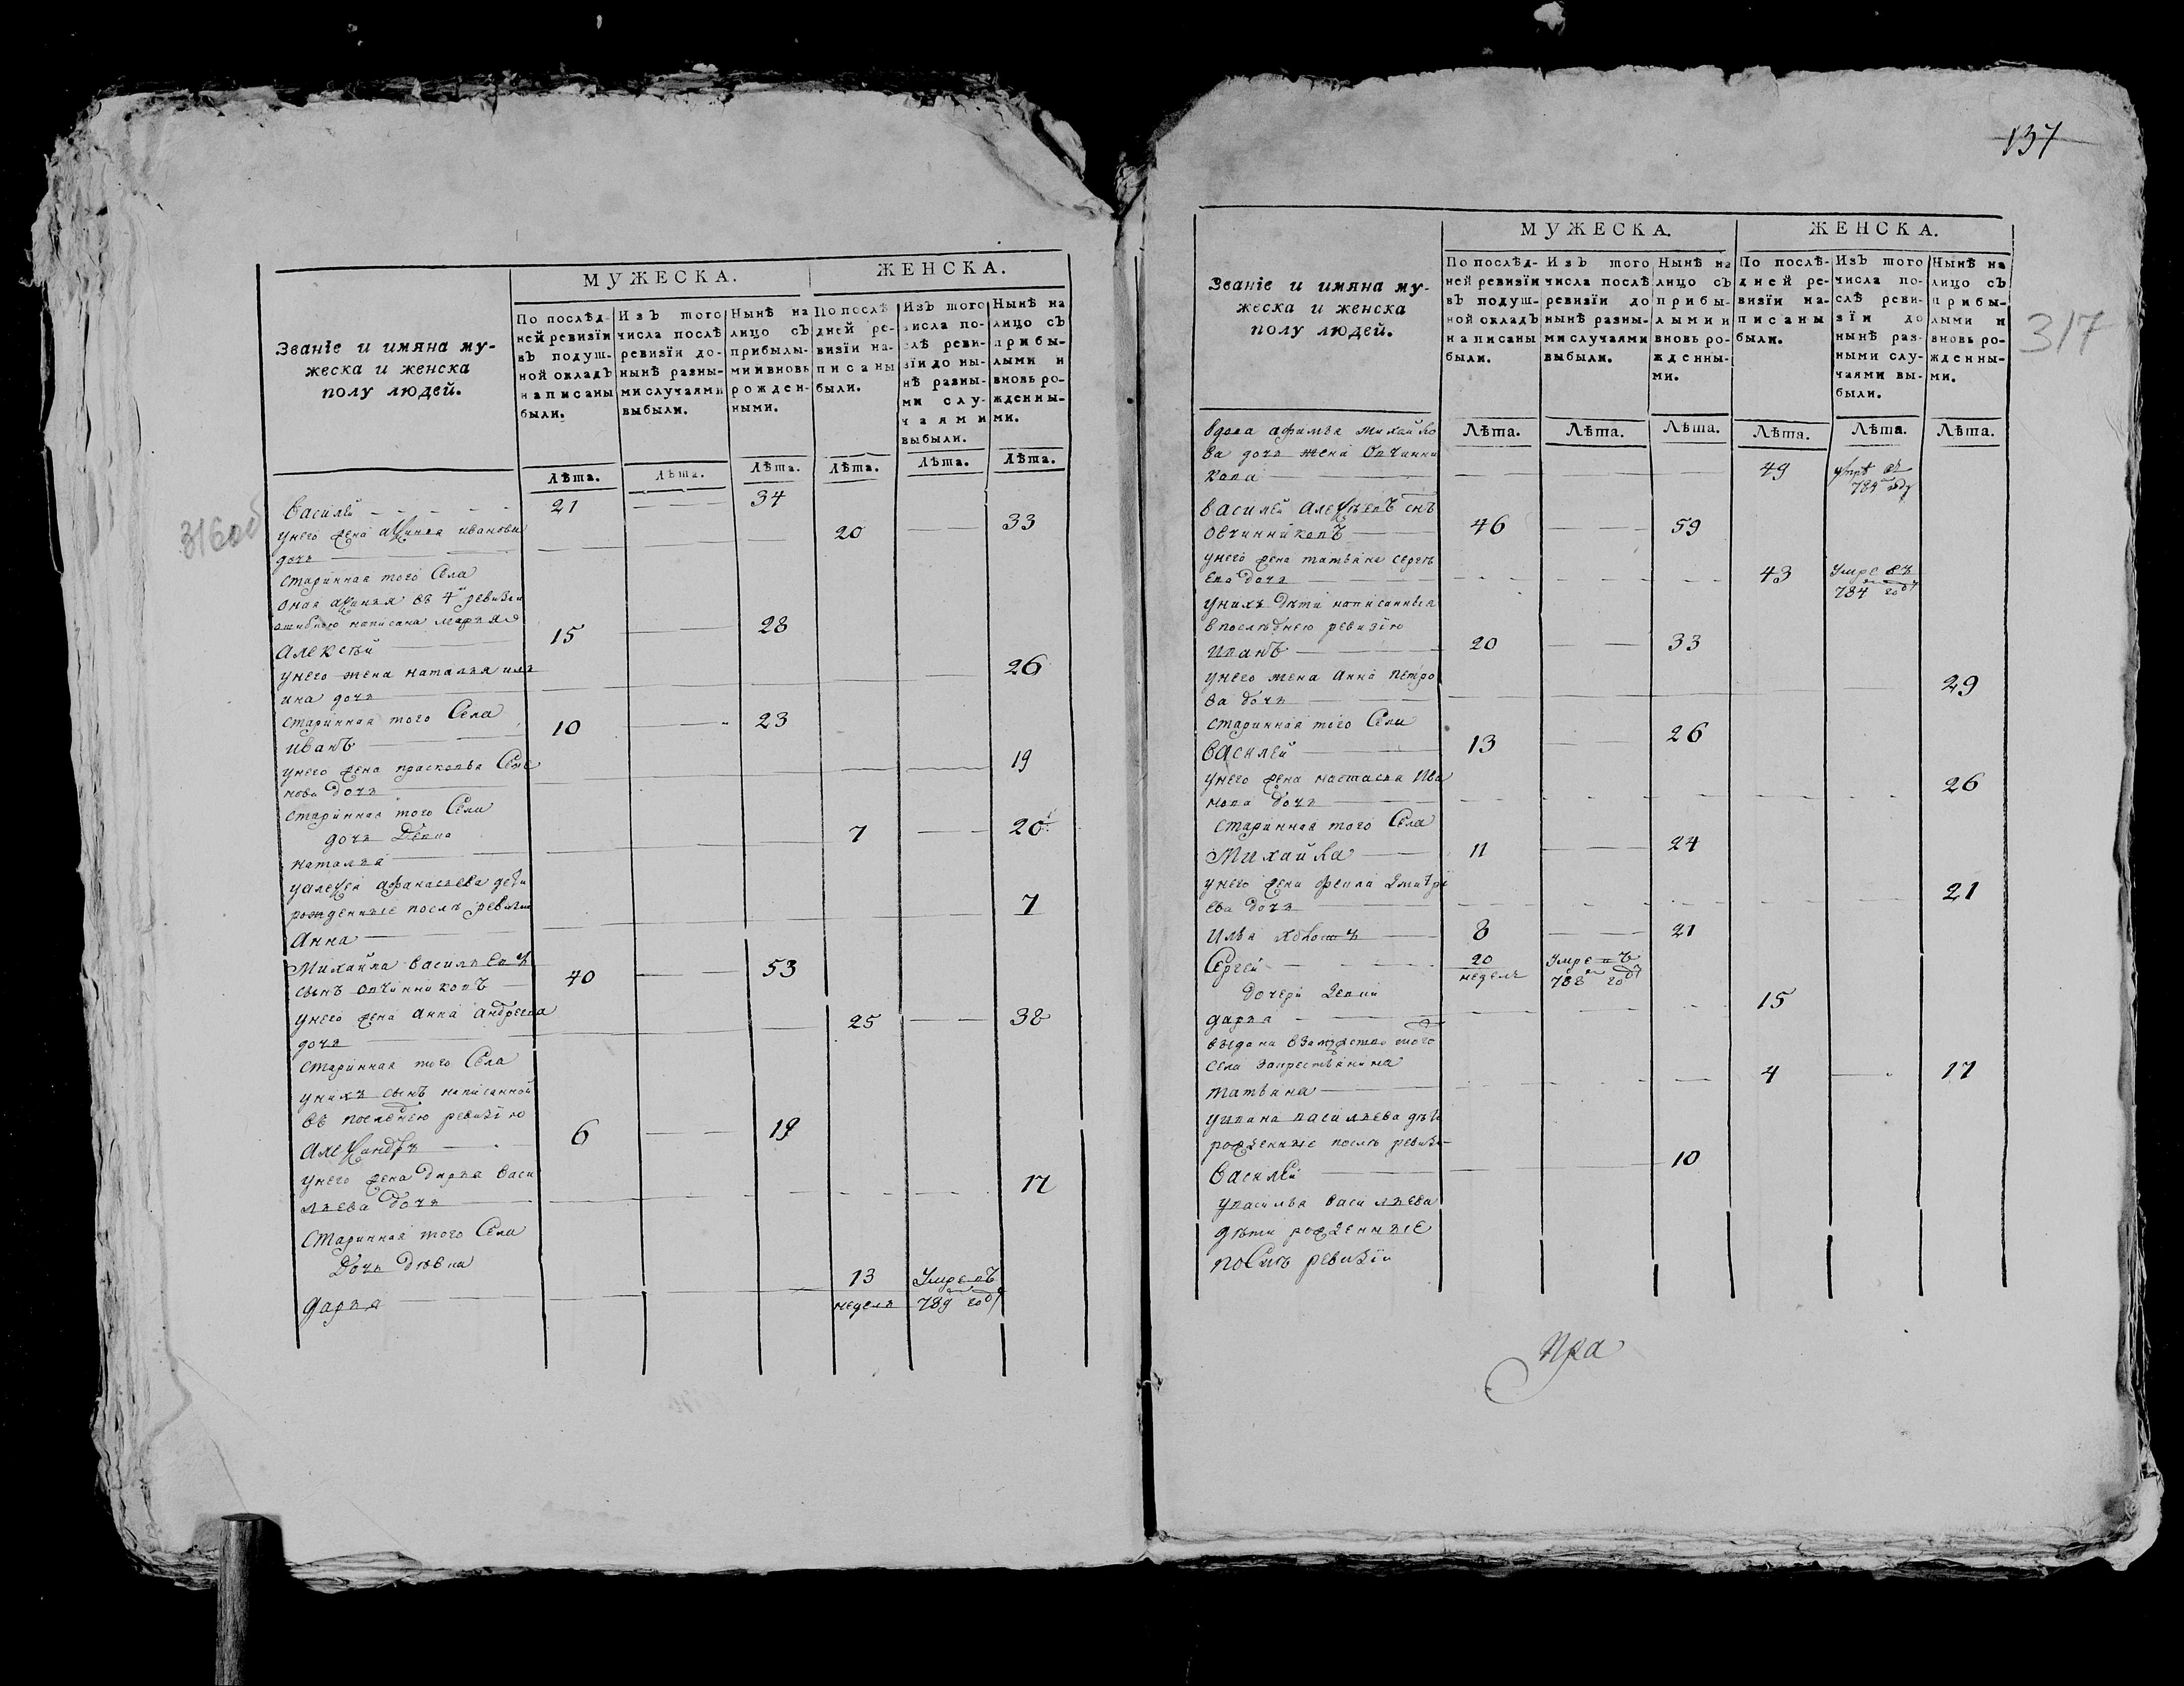 316об
Званіе и имяна му-
жеска и женска
полу людей.
МУЖЕСКА.
ЖЕНСКА.
По послѣд-
ней ревизїи
въ подуш-
ной окладъ
написаны
были.
Изъ того
числа послѣ
ревизїи до-
нынѣ разны-
ми случаями
выбыли.
Нынѣ на
лицо съ
прибылы-
ми и вновь
рожден-
ными.
По послѣ
дней ре-
визїи на-
писаны
были.
Изъ того
числа по-
слѣ реви-
зїи до ны-
нѣ разны-
ми слу-
чаями
выбыли.
Нынѣ на
лицо съ
прибы-
лыми и
вновь ро-
жденны-
ми.
Лѣта. Лѣта. Лѣта. Лѣта. Лѣта. Лѣта.
Василей 21 34
унего жена аксинья иванова
дочь 20 33
старинная того Села
оная аксинья въ 4й ревизіи
ошибкою написана марьяю
Алексѣй 15 28
унего жена наталья иль
ина дочь 26
старинная того Села
иванъ 10 23
унего жена прасковья Семе
нова дочь 19
старинная того Села
дочь Девка
наталья 7 20
уалексея афанасьева дети
рожденные после ревизии
Анна 7
Михайла васильевъ
сынъ овчинниковъ 40 53
унего жена анна андреева
дочь 25 38
старинная того Села
унихъ сынъ написанной
въ последнею ревизїю
Александръ 6 19
унего жена дарья васи
льева дочь 17
Старинная того Села
Дочь дѣвка
дарья 13 недель Умре въ 789м году
137
317
Званіе и имяна му-
жеска и женска
полу людей.
МУЖЕСКА.
ЖЕНСКА.
По послѣд-
ней ревизїи
въ подуш-
ной окладъ
написаны
были.
Изъ того
числа послѣ
ревизїи до
нынѣ разны-
ми случаями
выбыли.
Нынѣ на
лицо съ
прибы-
лыми и
вновь ро-
жденны-
ми.
По послѣ-
дней ре-
визїи на-
писаны
были.
Изъ того
числа по-
слѣ реви-
зїи до
нынѣ раз-
ными слу-
чаями вы-
были.
Нынѣ на
лицо съ
прибы-
лыми и
вновь ро-
жденны-
ми.
Лѣта. Лѣта. Лѣта. Лѣта. Лѣта. Лѣта.
вдова афимья михайло
ва дочь жена Овчинни
кова 49 умре въ 789м году
василей Алексѣевъ снъ
овчинниковъ 46 59
унего жена татьяна сергѣ
ева дочь 43 Умре въ 784м году
унихъ дѣти написанныя
впослѣднею ревизїю
иванъ 20 33
унего жена анна петро
ва дочь 29
старинная того Села
василей 13 26
унего жена настасья Ива
нова дочь 26
старинная того Села
Михайла 11 24
унего жена фекла дмитрі
ева дочь 21
Илья холостъ 8 21
Сергей 20 недель Умре въ 788м году
дочери девки
дарья 15
выдана взамужство того
села закрестьянина
татьяна 4 17
уивана васильева дѣти
рожденные послѣ ревизи
василей 10
увасилья васильева
дѣти рожденные
послѣ ревизїи
пра